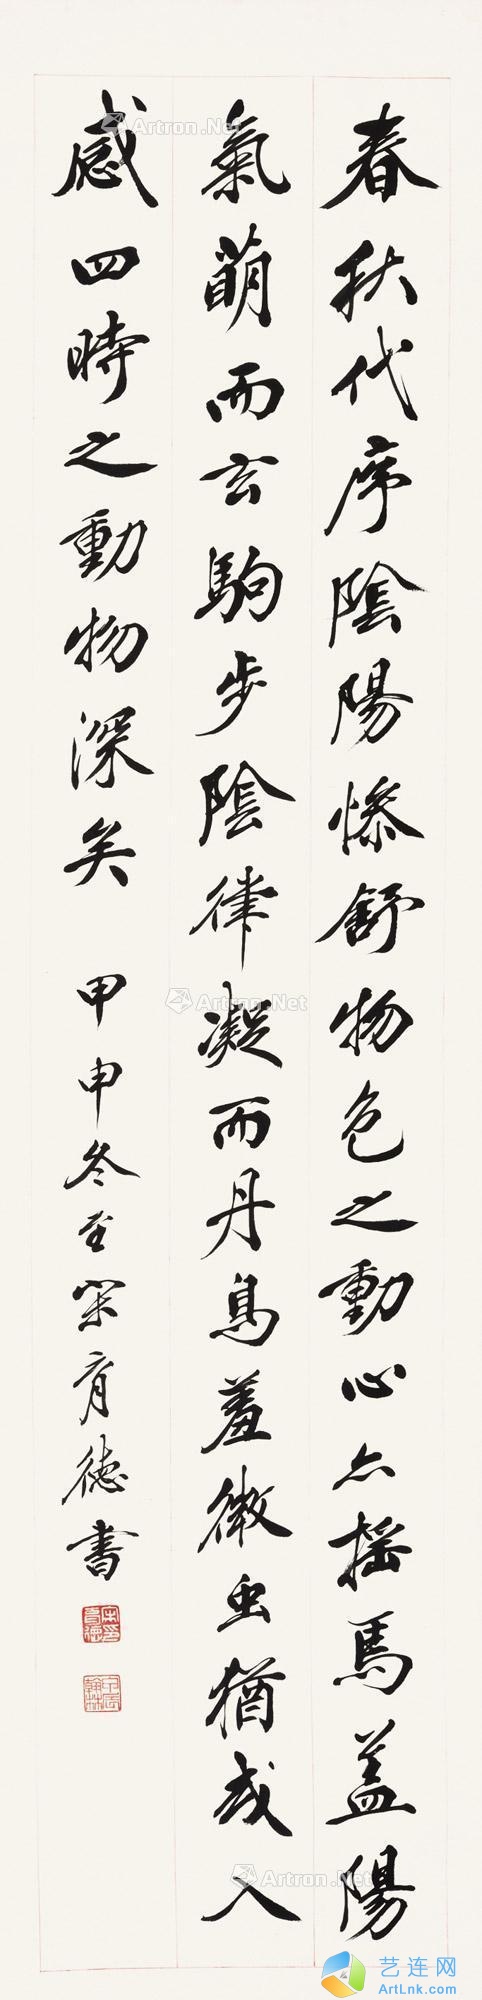 春秋代序陰陽慘舒物色之動心亦搖焉盖陽
氣萌而玄駒步陰律凝而丹鳥羞微虫猶或入
感四時之動物深矣
甲申冬至宋育德書
宋印育德
Artron.Net
Artron.Net
Artron.Net
Artron.Net
Artron.Net
艺连网
ArtLnk.com